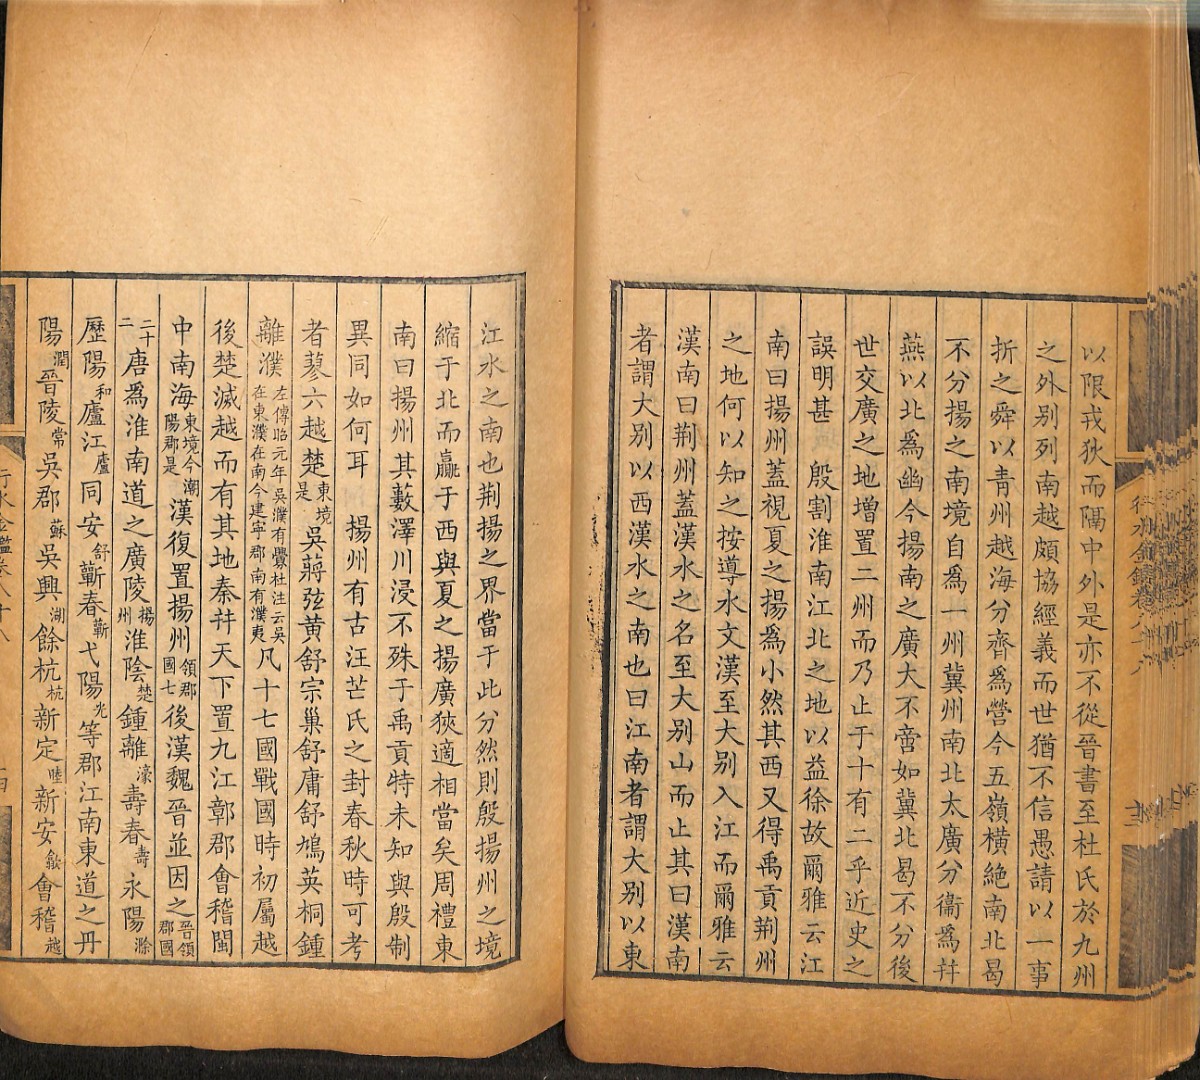 以限戎狄而隔中外是亦不從晉書至杜氏於九州
之外别列南越頗協經義而世猶不信愚請以一事
折之舜以青州越海分齊爲營今五嶺横絶南北曷
不分揚之南境自爲一州冀州南北太廣分衞爲幷
燕以北爲幽今揚南之廣大不啻如冀北曷不分後
世交廣之地增置二州而乃止于十有二乎近史之
誤明甚 殷割淮南江北之地以益徐故爾雅云江
南曰揚州蓋視夏之揚爲小然其西又得禹貢荆州
之地何以知之按導水文漢至大别入江而爾雅云
漢南曰荆州蓋漢水之名至大别山而止其曰漢南
者謂大别以西漢水之南也曰江南者謂大别以東
江水之南也荆揚之界當于此分然則殷揚州之境
縮于北而贏于西與夏之揚廣狹適相當矣周禮東
南曰揚州其藪澤川浸不殊于禹貢特未知與殷制
異同如何耳 揚州有古汪芒氏之封春秋時可考
者蓼六越楚東境是吳蔣弦黄舒宗巢舒庸舒鳩英桐鍾
離濮左傳昭元年吳濮有釁杜注云吳在東濮在南今建寧郡南有濮夷凡十七國戰國時初屬越
後楚滅越而有其地秦幷天下置九江鄣郡會稽閩
中南海東境今潮陽郡是漢復置揚州領郡國七後漢魏晉並因之晉領郡國
二十二唐爲淮南道之廣陵揚州淮陰楚鍾離濠壽春壽永陽滁
歷陽和廬江廬同安舒蘄春蘄弋陽光等郡江南東道之丹
陽潤晉陵常吳郡蘇吳興湖餘杭杭新定睦新安歙會稽越
行水金鑑卷八十八